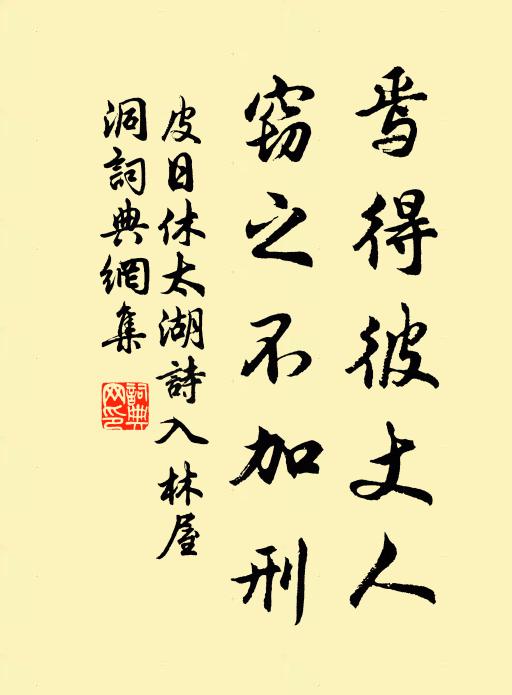 焉得彼丈人
窃之不加刑
皮日休太湖詩入林屋
洞詞典網集
詞典
网印